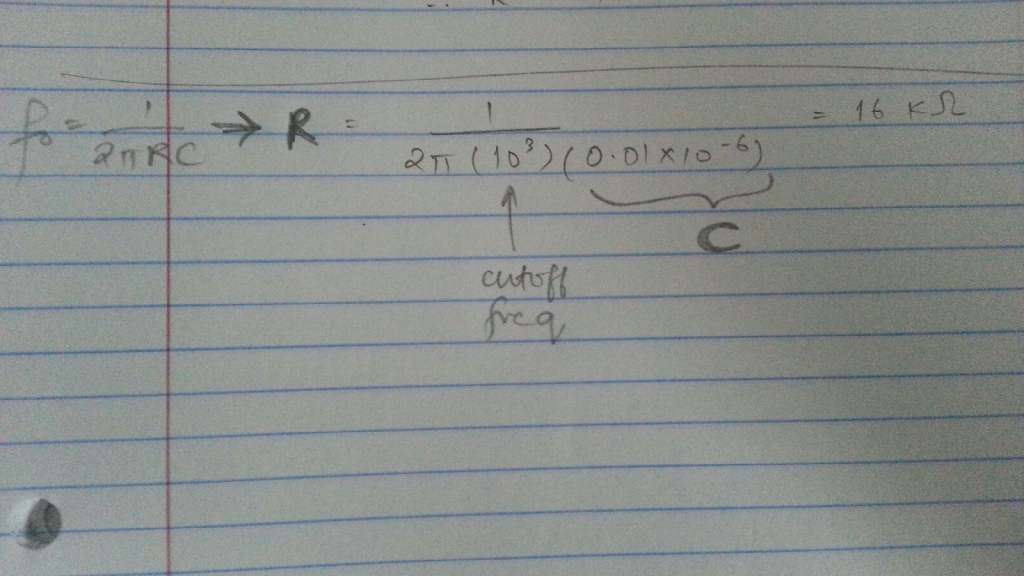 f₀ = 1/2πRC → R = 1/2π(10³)(0.01×10⁻⁶) = 16 KΩ
C
cutoff
freq